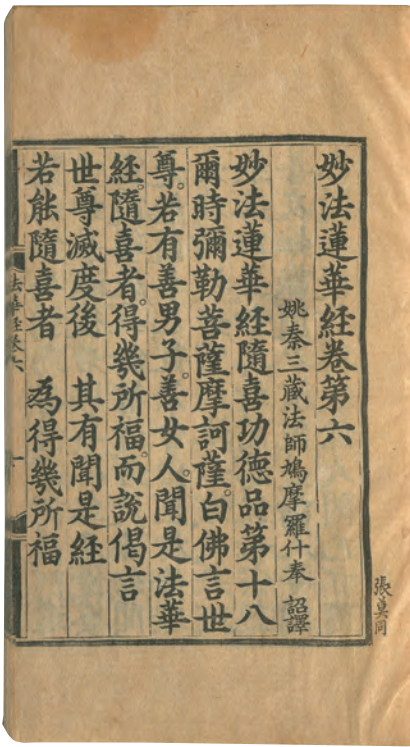 妙法蓮華經卷第六
姚秦三藏法師鳩摩羅什奉 詔譯
妙法蓮華經隨喜功德品第十八
爾時彌勒菩薩摩訶薩。白佛言世
尊。若有善男子。善女人。聞是法華
經。隨喜者。得幾所福。而說偈言
世尊滅度後 其有聞是經
若能隨喜者 為得幾所福
法華經卷六
一